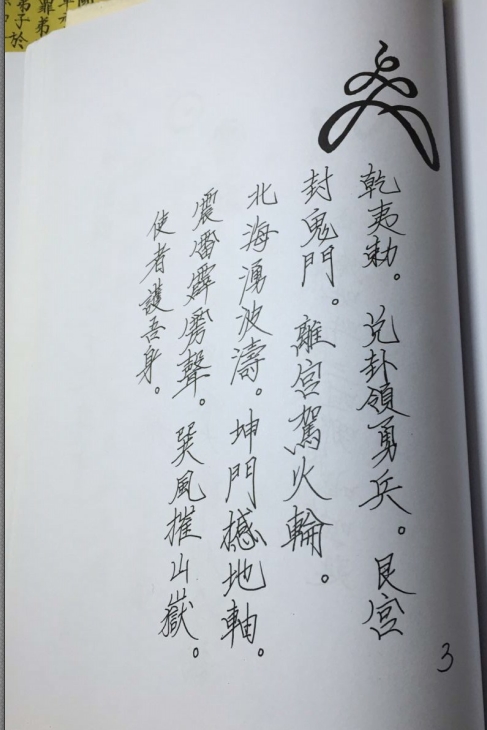 乾夷勅。兑卦領勇兵。艮宮
封鬼門。離宮駕火輪。
北海湧波濤。坤門撼地軸。
震雷霹靂聲。巽風摧山嶽。
使者護吾身。
3
弟子於